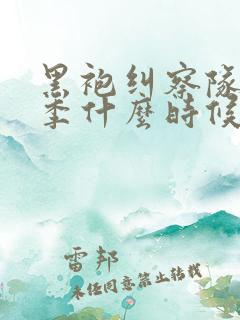 黑袍纠察隊
季什麼時候
雷邦
未经同意禁止转载